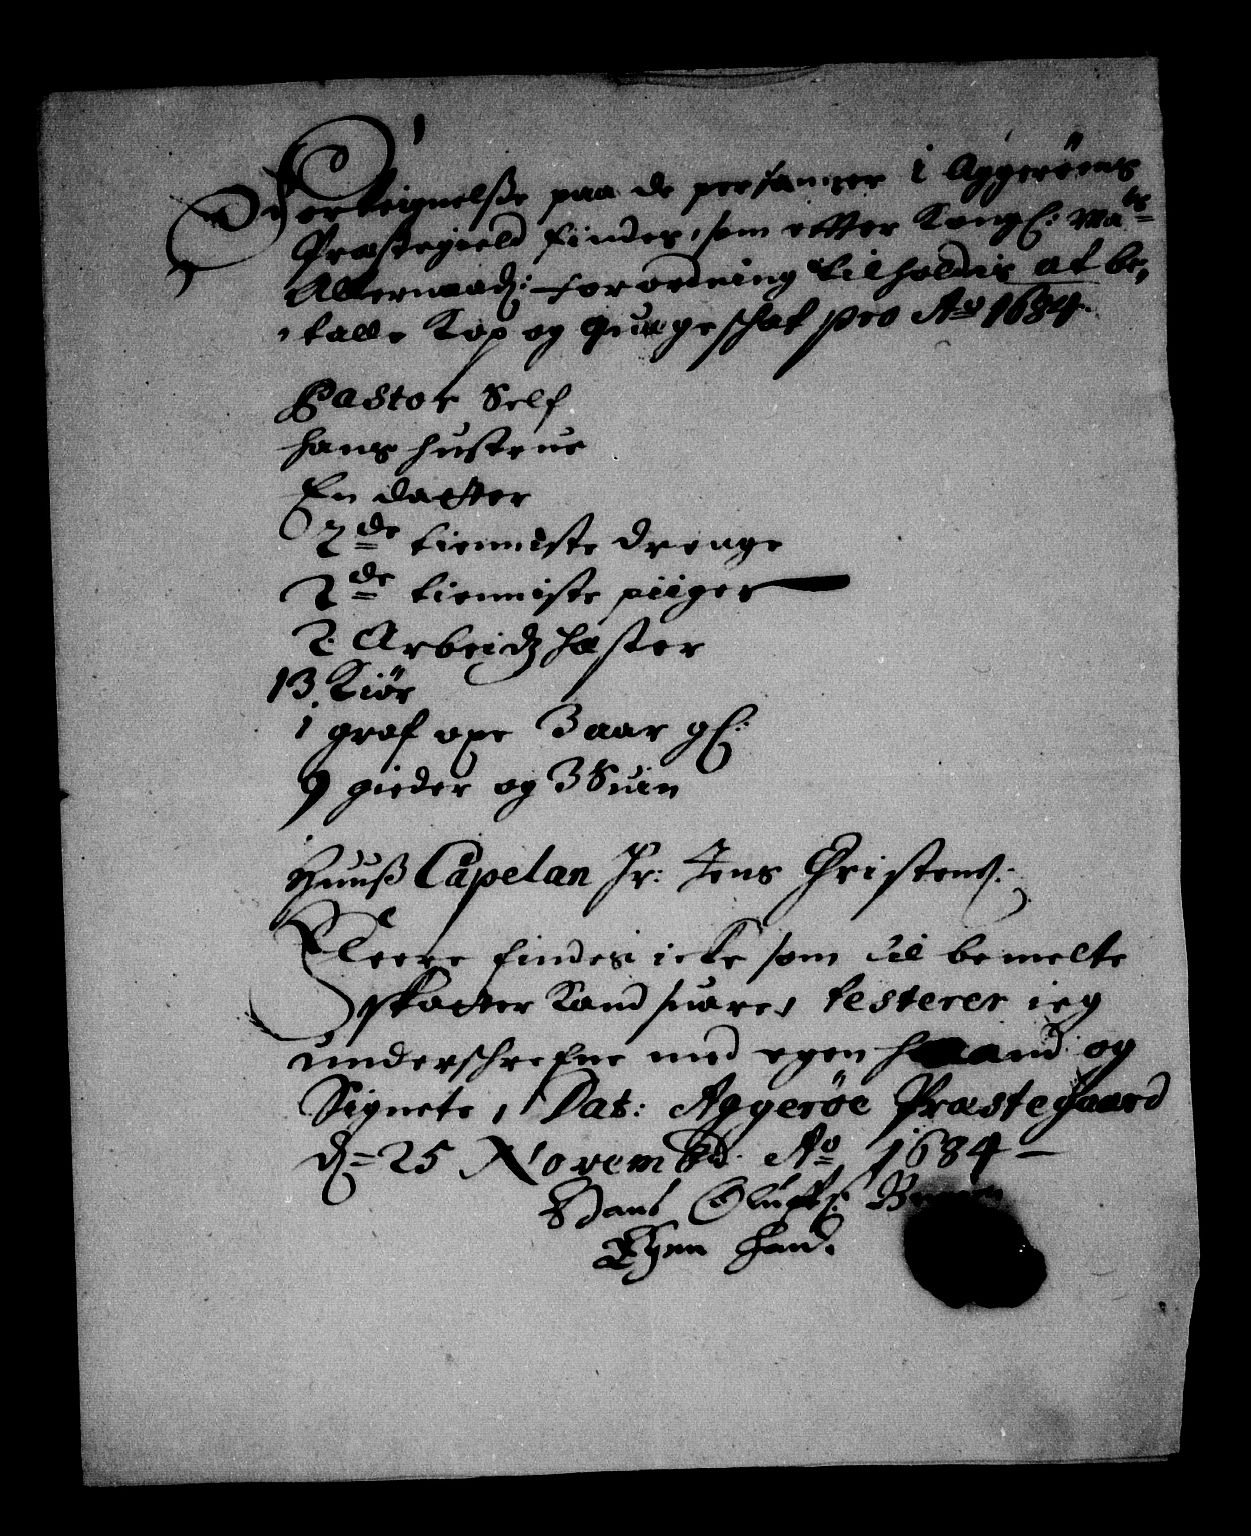 Forteignelsse paa de personer i Aggerøens
Præstegield findes, som effter Kongl: Mats
Allernaad: forordning tilholdis at be,
,talle Kop og Quegschat pro Ao 1684.
Pastor Self
hans hustrue
En datter
2de tienniste drenge
2de tienniste piiger
2. Arbeidz hæster
13 Kiør
1 graf oxe 3 aar gl:
9 gieder og 3 Suin
Huuß Capelan Hr: Jens Christens:
Fleere findes icke som til bemelte
skatter kand suare, testerer ieg
underschrefne med egen haand og
Signete, Dat: Aggerøe Præstegaard
d= 25 Novembr. Ao 1684
Hans Olufs:
Egen hand.